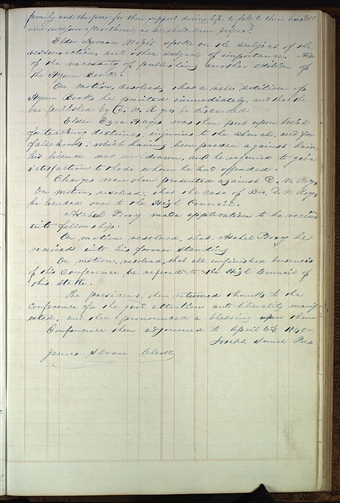 family and the poor for their support during life, to
and
Elder Lyman Wight spoke on the subject of the
resurrection, and other subjects of importance. Also
of the necessity of publishing another edition of
the Hymn Book.
On motion, resolved, that a new edition of
Hymn Books be printed immediately, and that the
one published by D. W. Rogers be discarded
Elder Ezra Hayes was then put upon trial
for teaching doctrines, injurious to the church, and for
falsehoods; which having been proven against him,
his license was withdrawn, and he required to give
satisfaction to those whom he had offended.
Charges were then presented against D. W. Rogers
On motion, resolved, that the case of Bro. D. W. Rogers
be handed over to the High Council.
Asahel Perry made application to be received
into fellowship.
On motion resolved, that, Asahel Perry be
received into his former standing
On motion, resolved, that all unfinished business
of this Conference, be referred to the High Council of
this stake.
The president, then returned thanks to the
conference for the good attention and liberality manif-
ested, and then pronounced a blessing upon them.
Conference then adjourned to April 6th 1840—
Joseph Smith Pres
James Sloan Clerk